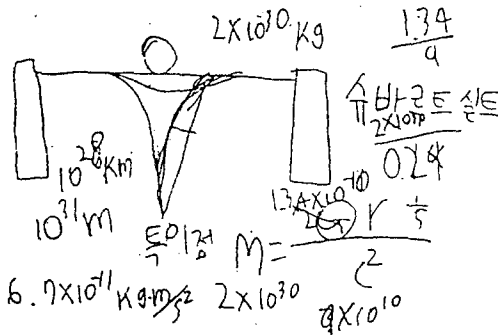 2×10³⁰ kg
1.34
9
슈바르트 실트
0.24
10²⁸ km
10³¹ m
특이점
M =
r
1/5
c²
6.7×10⁻¹¹ kg·m/s²
2×10³⁰
9×10¹⁰